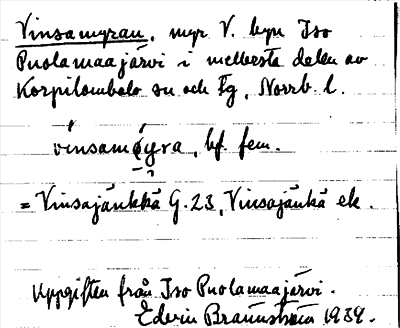 Vinsamyran, myr V. byn Iso
Puolamaajärvi i mellersta delen av
Korpilombolo sn och tg, Norrb. l.
vinsamyra, bf. fem.
= Vinsajänkkä G. 23, Vinsajänkä ek.
Uppgiften från Iso Puolamaajärvi.
Edvin Brännström 1939.